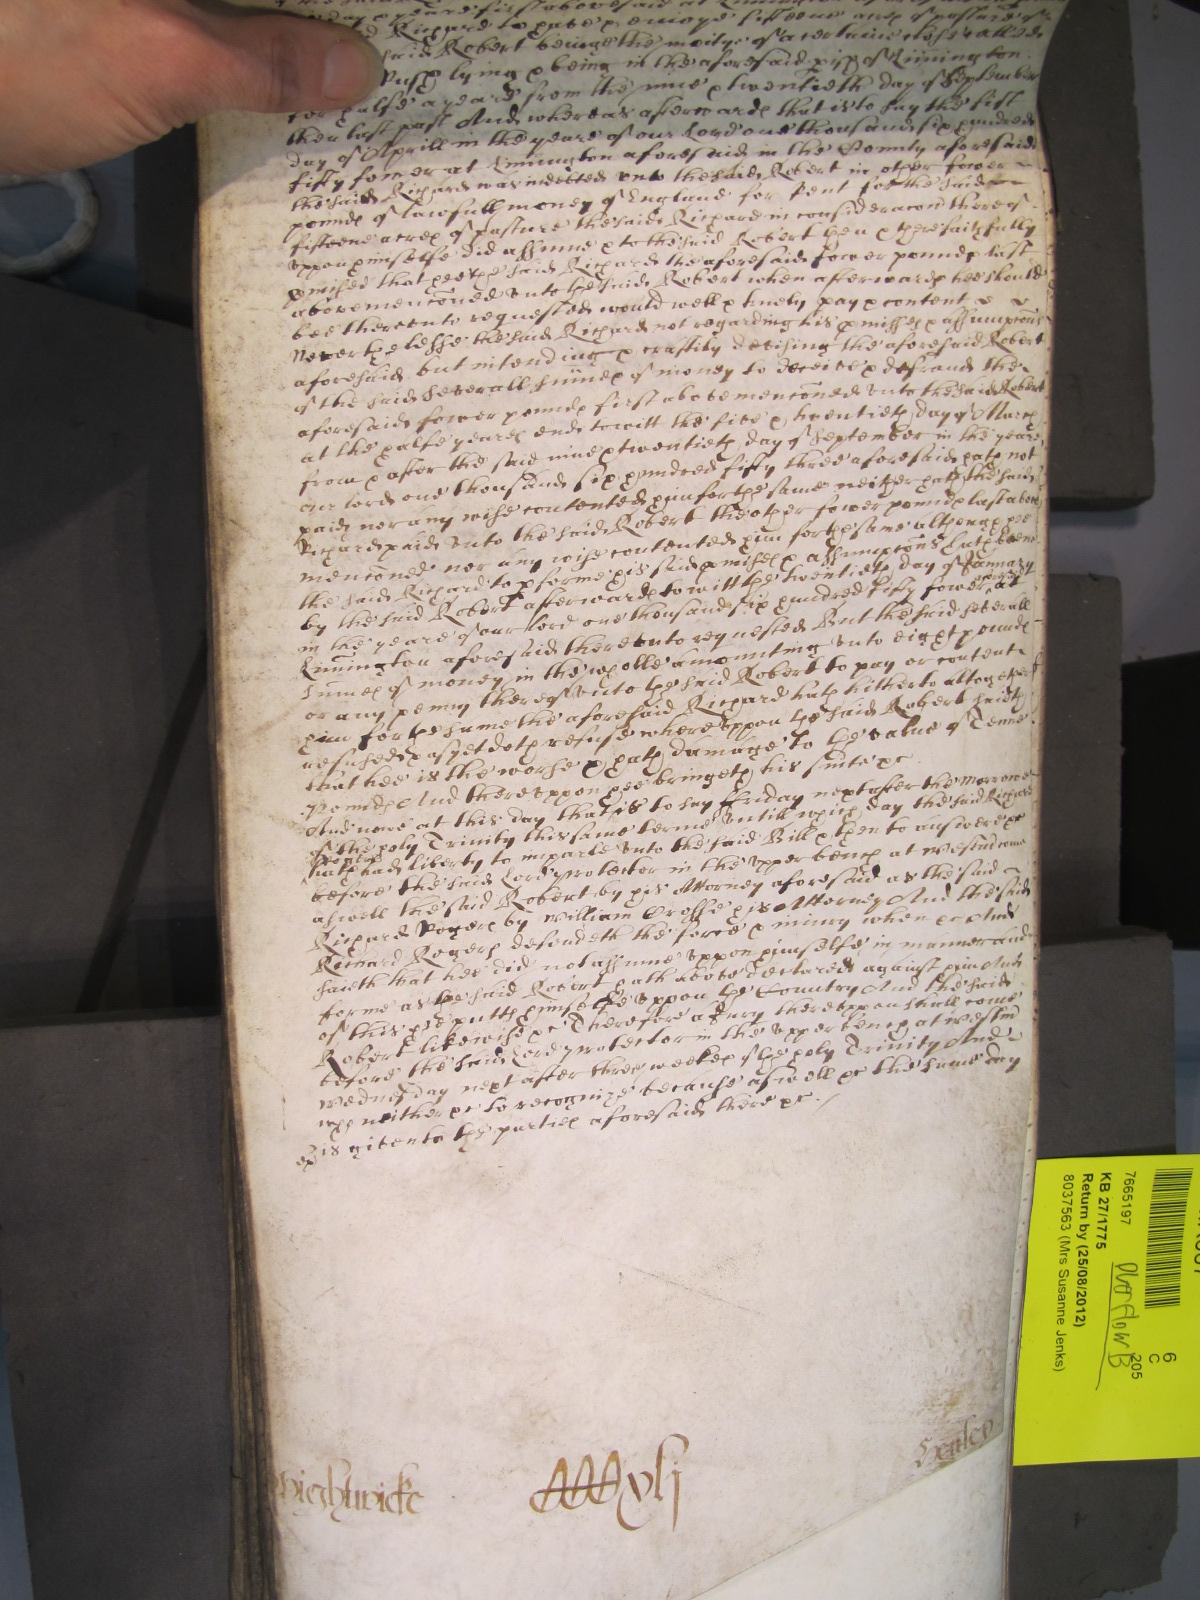 said Richard to have & enioye fifteene acres of pasture
said Robert beinge the moitye of a certaine close called
Rush lying & being in the aforesaid pish of Kinington
for halfe a yeare from the nine & twentieth day of September
then last past And whereas afterwards that is to say the first
day of Aprill in the yeare of our Lord one thousand six hundred
fifty fower at Kinnington aforesaid in the County aforesaid
the said Richard was indebted unto the said Robert in other fower
pounds of lawfull money of England for Rent for the said
fifteene acres of pasture the said Richard in consideracon thereof
uppon himselfe did assume & to the said Robert then & there faithfully
pmised that hee the said Richard the aforesaid fower pounds last
abovemenconed unto the said Robert when afterwards hee should
bee thereunto requested would well & truely pay & content
Neverthelesse the said Richard not regarding his pmises & assumptions
aforesaid but intending & craftily devising the aforesaid Robert
of the said severall summes of money to deceive & defraud the
aforesaid fower pounds first abovemenconed unto the said Robert
at the halfe yeares end to witt the five & twentieth day of March
from & after the said nine & twentieth day of September in the yeare
our lord one thousand six hundred fifty three aforesaid hath not
paid nor any wise contented him for the same neither hath the said
Richard paid unto the said Robert the other fower pounds last above
menconed nor any wise contented him for the same although hee
the said Richard to pforme his said pmises & assumptions hath beene
by the said Robert afterwards to witt the twentieth day of January
in the yeare of our Lord one thousand six hundred fifty fower at
Kinnington aforesaid thereunto requested But the said severall
summes of money in the wholle amounting unto eight pounds
or any penny thereof unto the said Robert to pay or content
him for the same the aforesaid Richard hath hitherto altogether
refused & as yet doth refuse whereuppon the said Robert saieth
that hee is the worse & hath damage to the value of Tenne
Pounds And thereuppon hee bringeth his suite &c
And nowe at this day that is to say Friday next after the Morrowe
of the holy Trinity this same terme untill which day the said Richard
hath had liberty to imparle unto the said Bill & then to answere &c
before the said Lord Protector in the upper bench at Westm come
aswell the said Robert by his Attorney aforesaid as the said
Richard Rogers by William Crosse his Attorney And the said
Richard Rogers defendeth the force & iniury when &c And
saieth that hee did not assume uppon himselfe in manner and
forme as the said Robert hath above declared against him And
of this hee putts himselfe uppon the Country And the said
Robert likewise &c Therefore a Jury thereuppon shall come
before the said Lord Protector in the upper bench at Westm
Wednesday next after three weekes of the holy Trinity And
who neither &c to recognize because aswell &c the same day
is given to the parties aforesaid there &c
Wightwicke
CCCxlj
Henley
7665197
KB 27/1775
Return by (25/08/2012)
8037563 (Mrs Susanne Jenks)
Overflow B
6
C
205